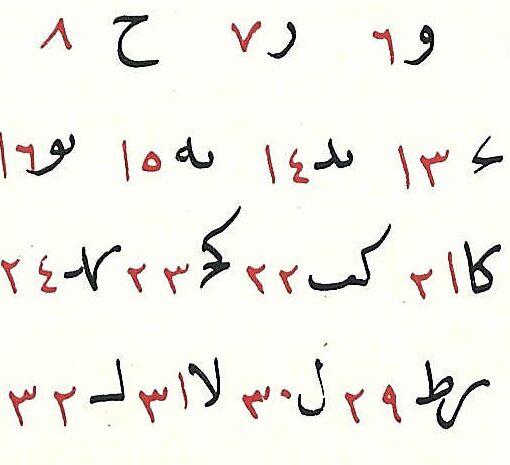 و ٦ ر ٧ ح ٨
ء ١٣ ىد ١٤ ىه ١٥ ىو ١٦
كا ٢١ كٮ ٢٢ كح ٢٣ كد ٢٤
كط ٢٩ ل ٣٠ لا ٣١ لٮ ٣٢